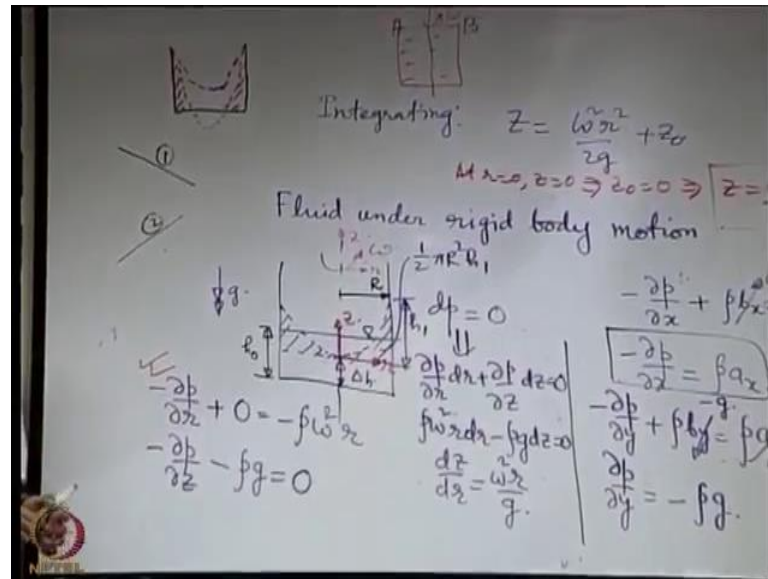 A B
Integrating: Z = ω²r²/2g + z₀
At r=0, z=0 ⇒ z₀=0 ⇒ z=
①
②
Fluid under rigid body motion
½πR²h₁
ω
R
↓g
z
h₁
h₀
r
Δh
dp = 0
⇓
∂p/∂r dr + ∂p/∂z dz=0
ρω²rdr - ρgdz=0
dz/dr = ω²r/g.
-∂p/∂r + 0 = -ρω²r
-∂p/∂z - ρg = 0
-∂p/∂x + ρbₓ
-∂p/∂x = ρaₓ
-g.
-∂p/∂y + ρb_y = ρa
∂p/∂y = -ρg.
NPTEL